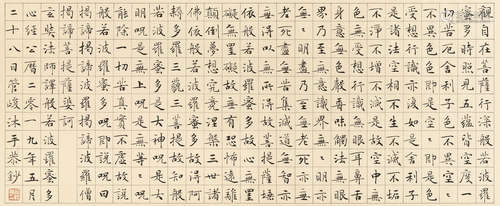 觀自在菩薩行深般若波羅
蜜多時照見五蘊皆空度一
切苦厄舍利子色不異空空
不異色色即是空空即是色
受想行識亦復如是舍利子
是諸法空相不生不滅不垢
不淨不增不減是故空中無
色無受想行識無眼耳鼻舌
身意無色聲香味觸法無眼
界乃至無意識界無無明亦
無無明盡乃至無老死亦無
老死盡無苦集滅道無智亦
無得以無所得故菩提薩埵
依般若波羅蜜多故心無罣
礙無罣礙故無有恐怖遠離
顛倒夢想究竟涅槃三世諸
佛依般若波羅蜜多故得阿
耨多羅三藐三菩提故知般
若波羅蜜多是大神咒是大
明咒是無上咒是無等等咒
能除一切苦真實不虛故說
般若波羅蜜多咒即說咒曰
揭諦揭諦波羅揭諦波羅僧
揭諦菩提薩婆訶
玄奘法師譯般若波羅蜜多
心經公曆二零一九年五月
二十八日管峻沐手恭鈔